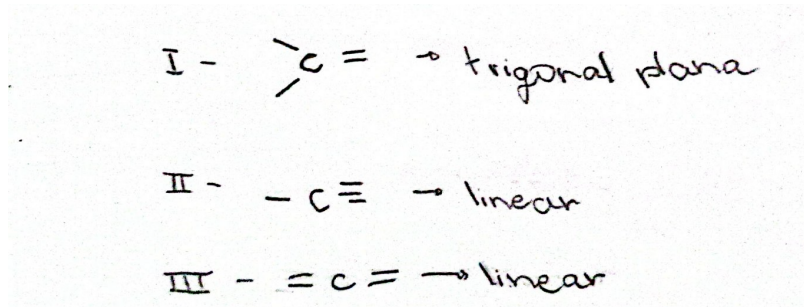 I - >C= → trigonal plana
II - -C≡ → linear
III - =C= → linear